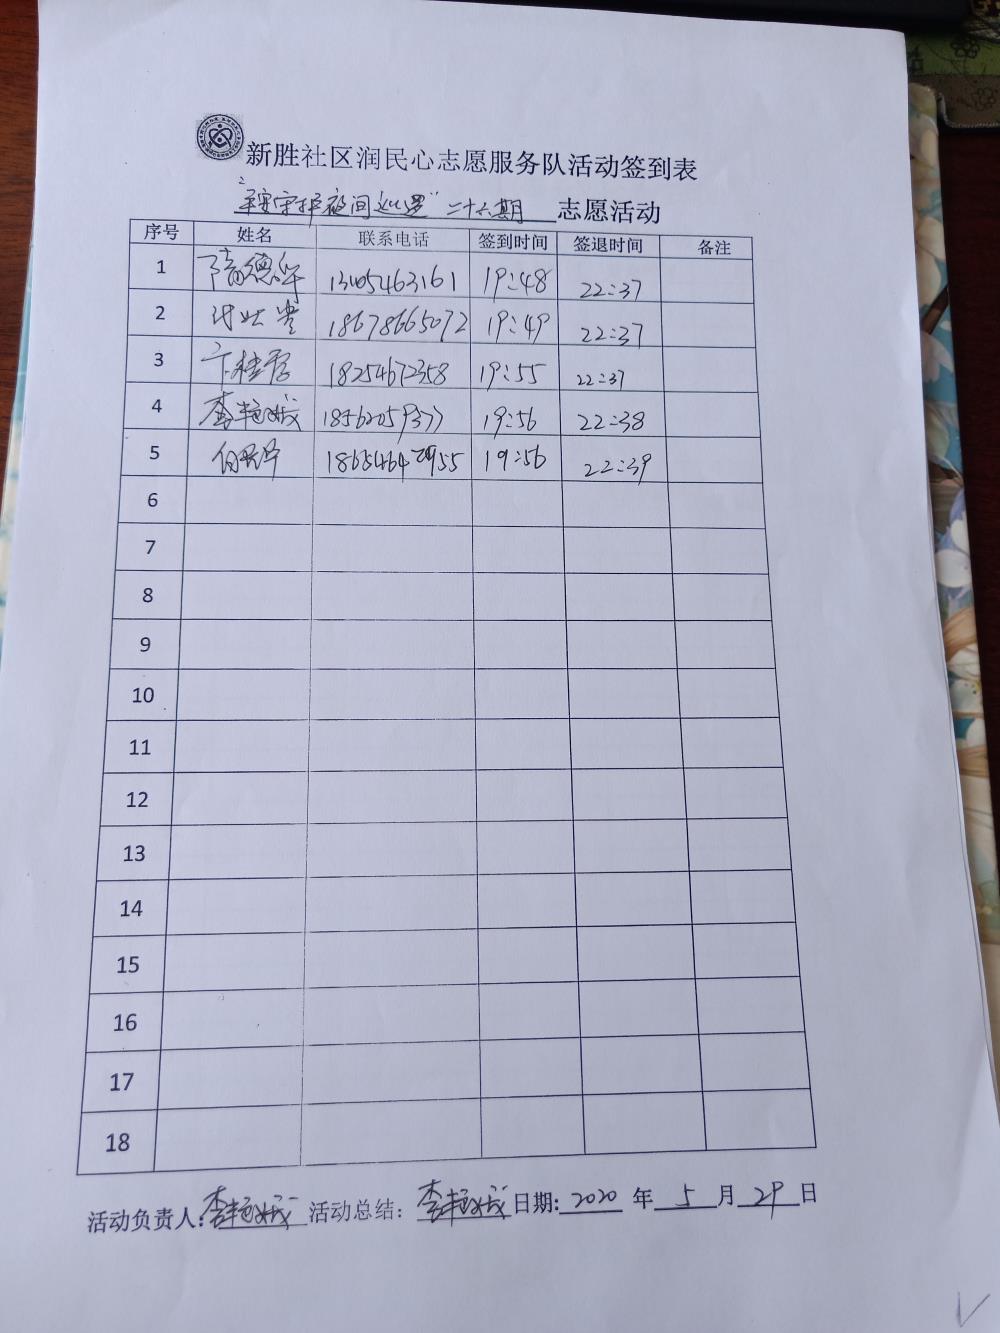 新胜社区润民心志愿服务队活动签到表
"平安守护夜间巡逻"二十六期 志愿活动
序号 姓名 联系电话 签到时间 签退时间 备注
1 隋德华 13405463161 19:48 22:37
2 18678665072 19:49 22:37
3 卞桂香 18254672358 19:55 22:37
4 李艳斌 18562059377 19:56 22:38
5 19:56 22:39
6
7
8
9
10
11
12
13
14
15
16
17
18
活动负责人:李艳斌 活动总结:李艳斌 日期:2020 年 5 月 29 日